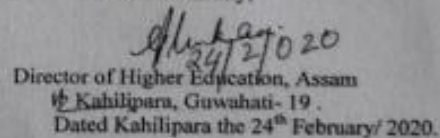 24/2/020
Director of Higher Education, Assam
Kahilipara, Guwahati- 19 .
Dated Kahilipara the 24th February/ 2020.